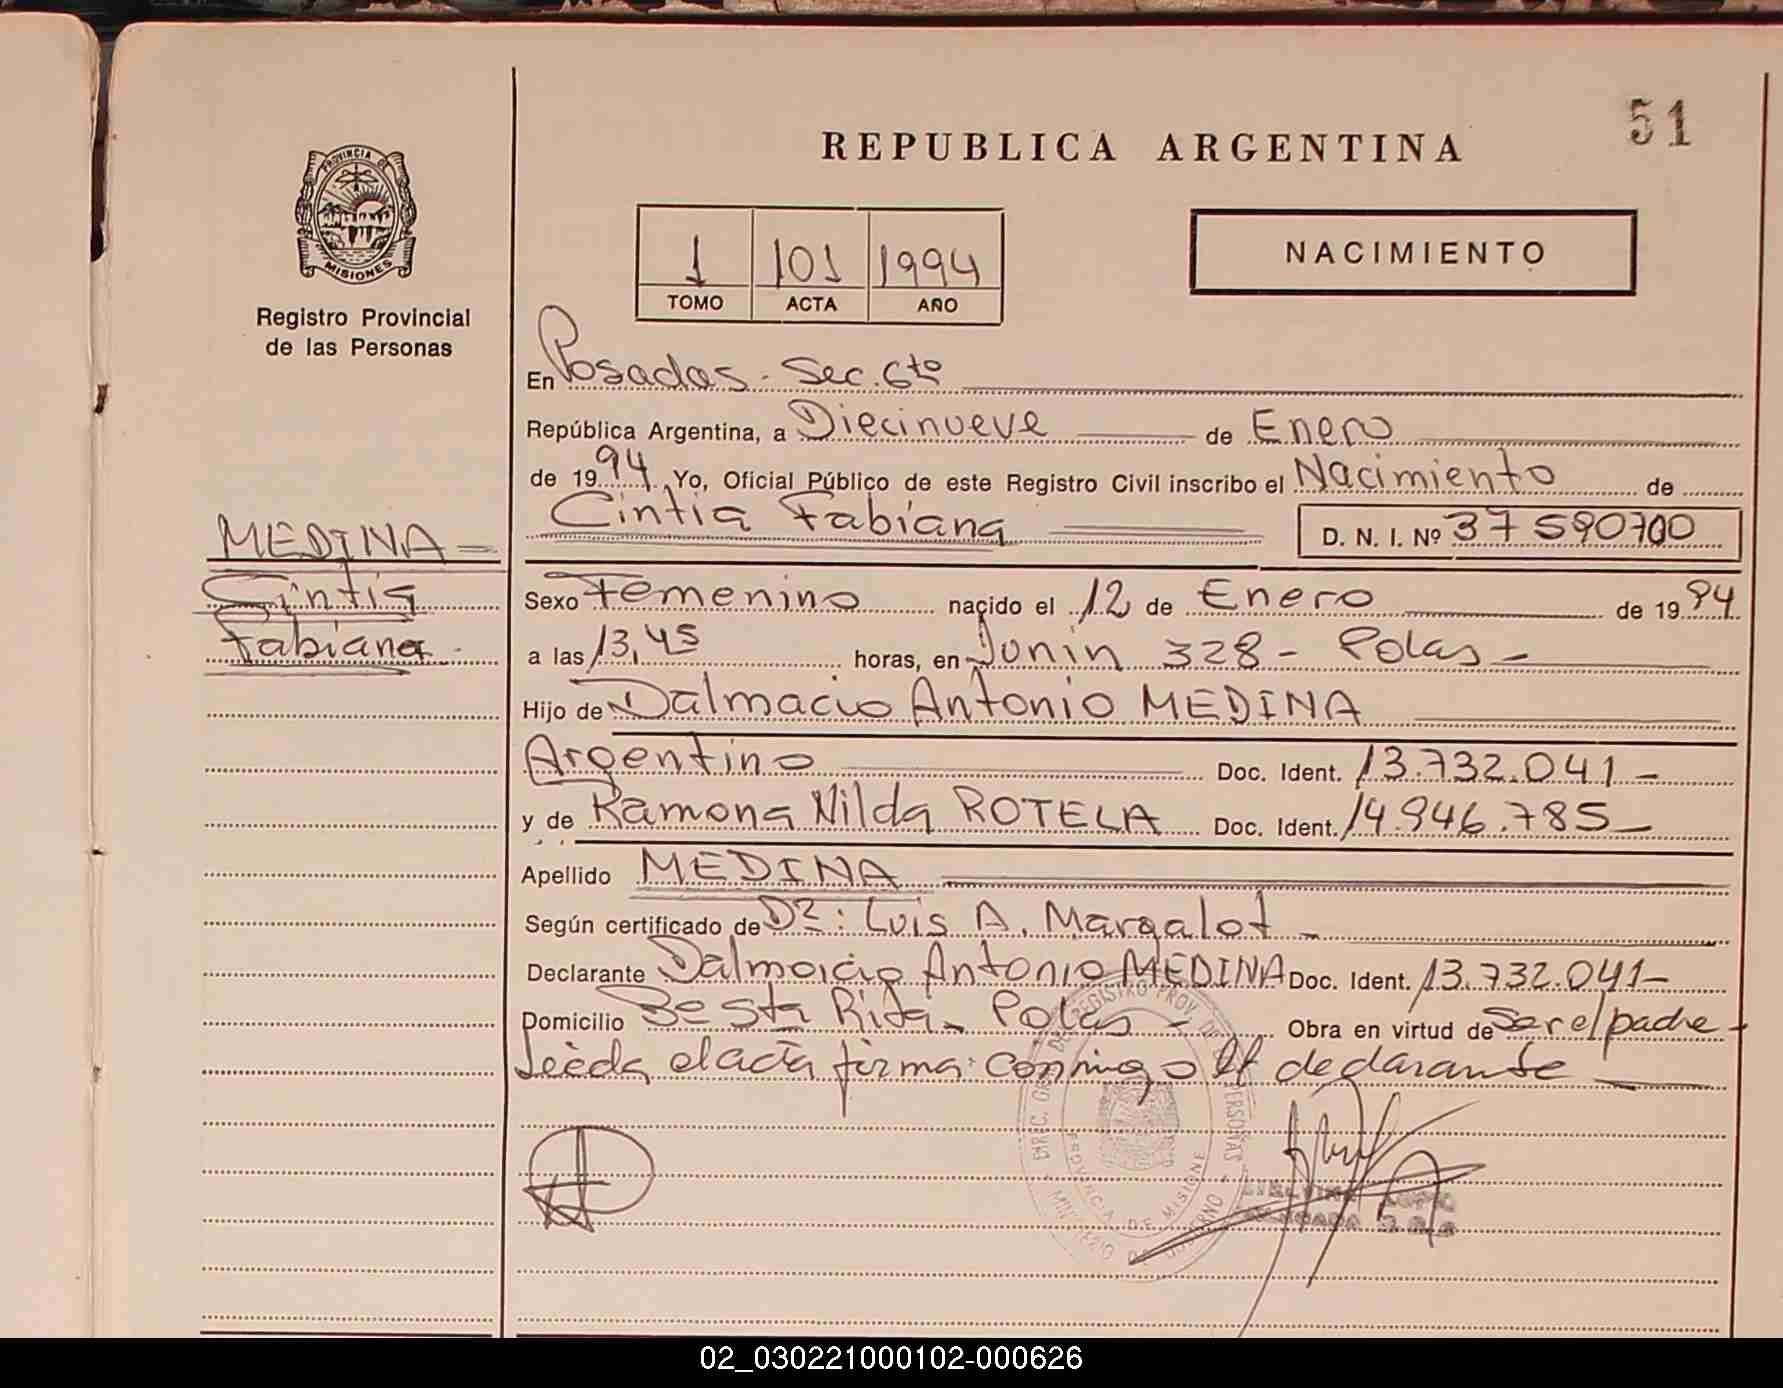 51
REPUBLICA ARGENTINA
PROVINCIA DE
MISIONES
Registro Provincial
de las Personas
1 101 1994
TOMO ACTA AÑO
NACIMIENTO
En Posadas - Sec. 6ta
República Argentina, a Diecinueve de Enero
de 1994 Yo, Oficial Público de este Registro Civil inscribo el Nacimiento de
Cintia Fabiana D. N. I. Nº 37590700
MEDINA
Cintia
Fabiana
Sexo Femenino nacido el 12 de Enero de 1994
a las 13,45 horas, en Junin 328 - Pdas -
Hijo de Dalmacio Antonio MEDINA
Argentino Doc. Ident. 13.732.041 -
y de Ramona Nilda ROTELA Doc. Ident. 14.946.785 -
Apellido MEDINA
Según certificado de Dr: Luis A. Margalot -
Declarante Dalmacio Antonio MEDINA Doc. Ident. 13.732.041 -
Domicilio Sta Rita - Pdas - Obra en virtud de Ser el padre -
Leída el acta firma conmigo el declarante
PROVINCIA DE MISIONES
02_030221000102-000626